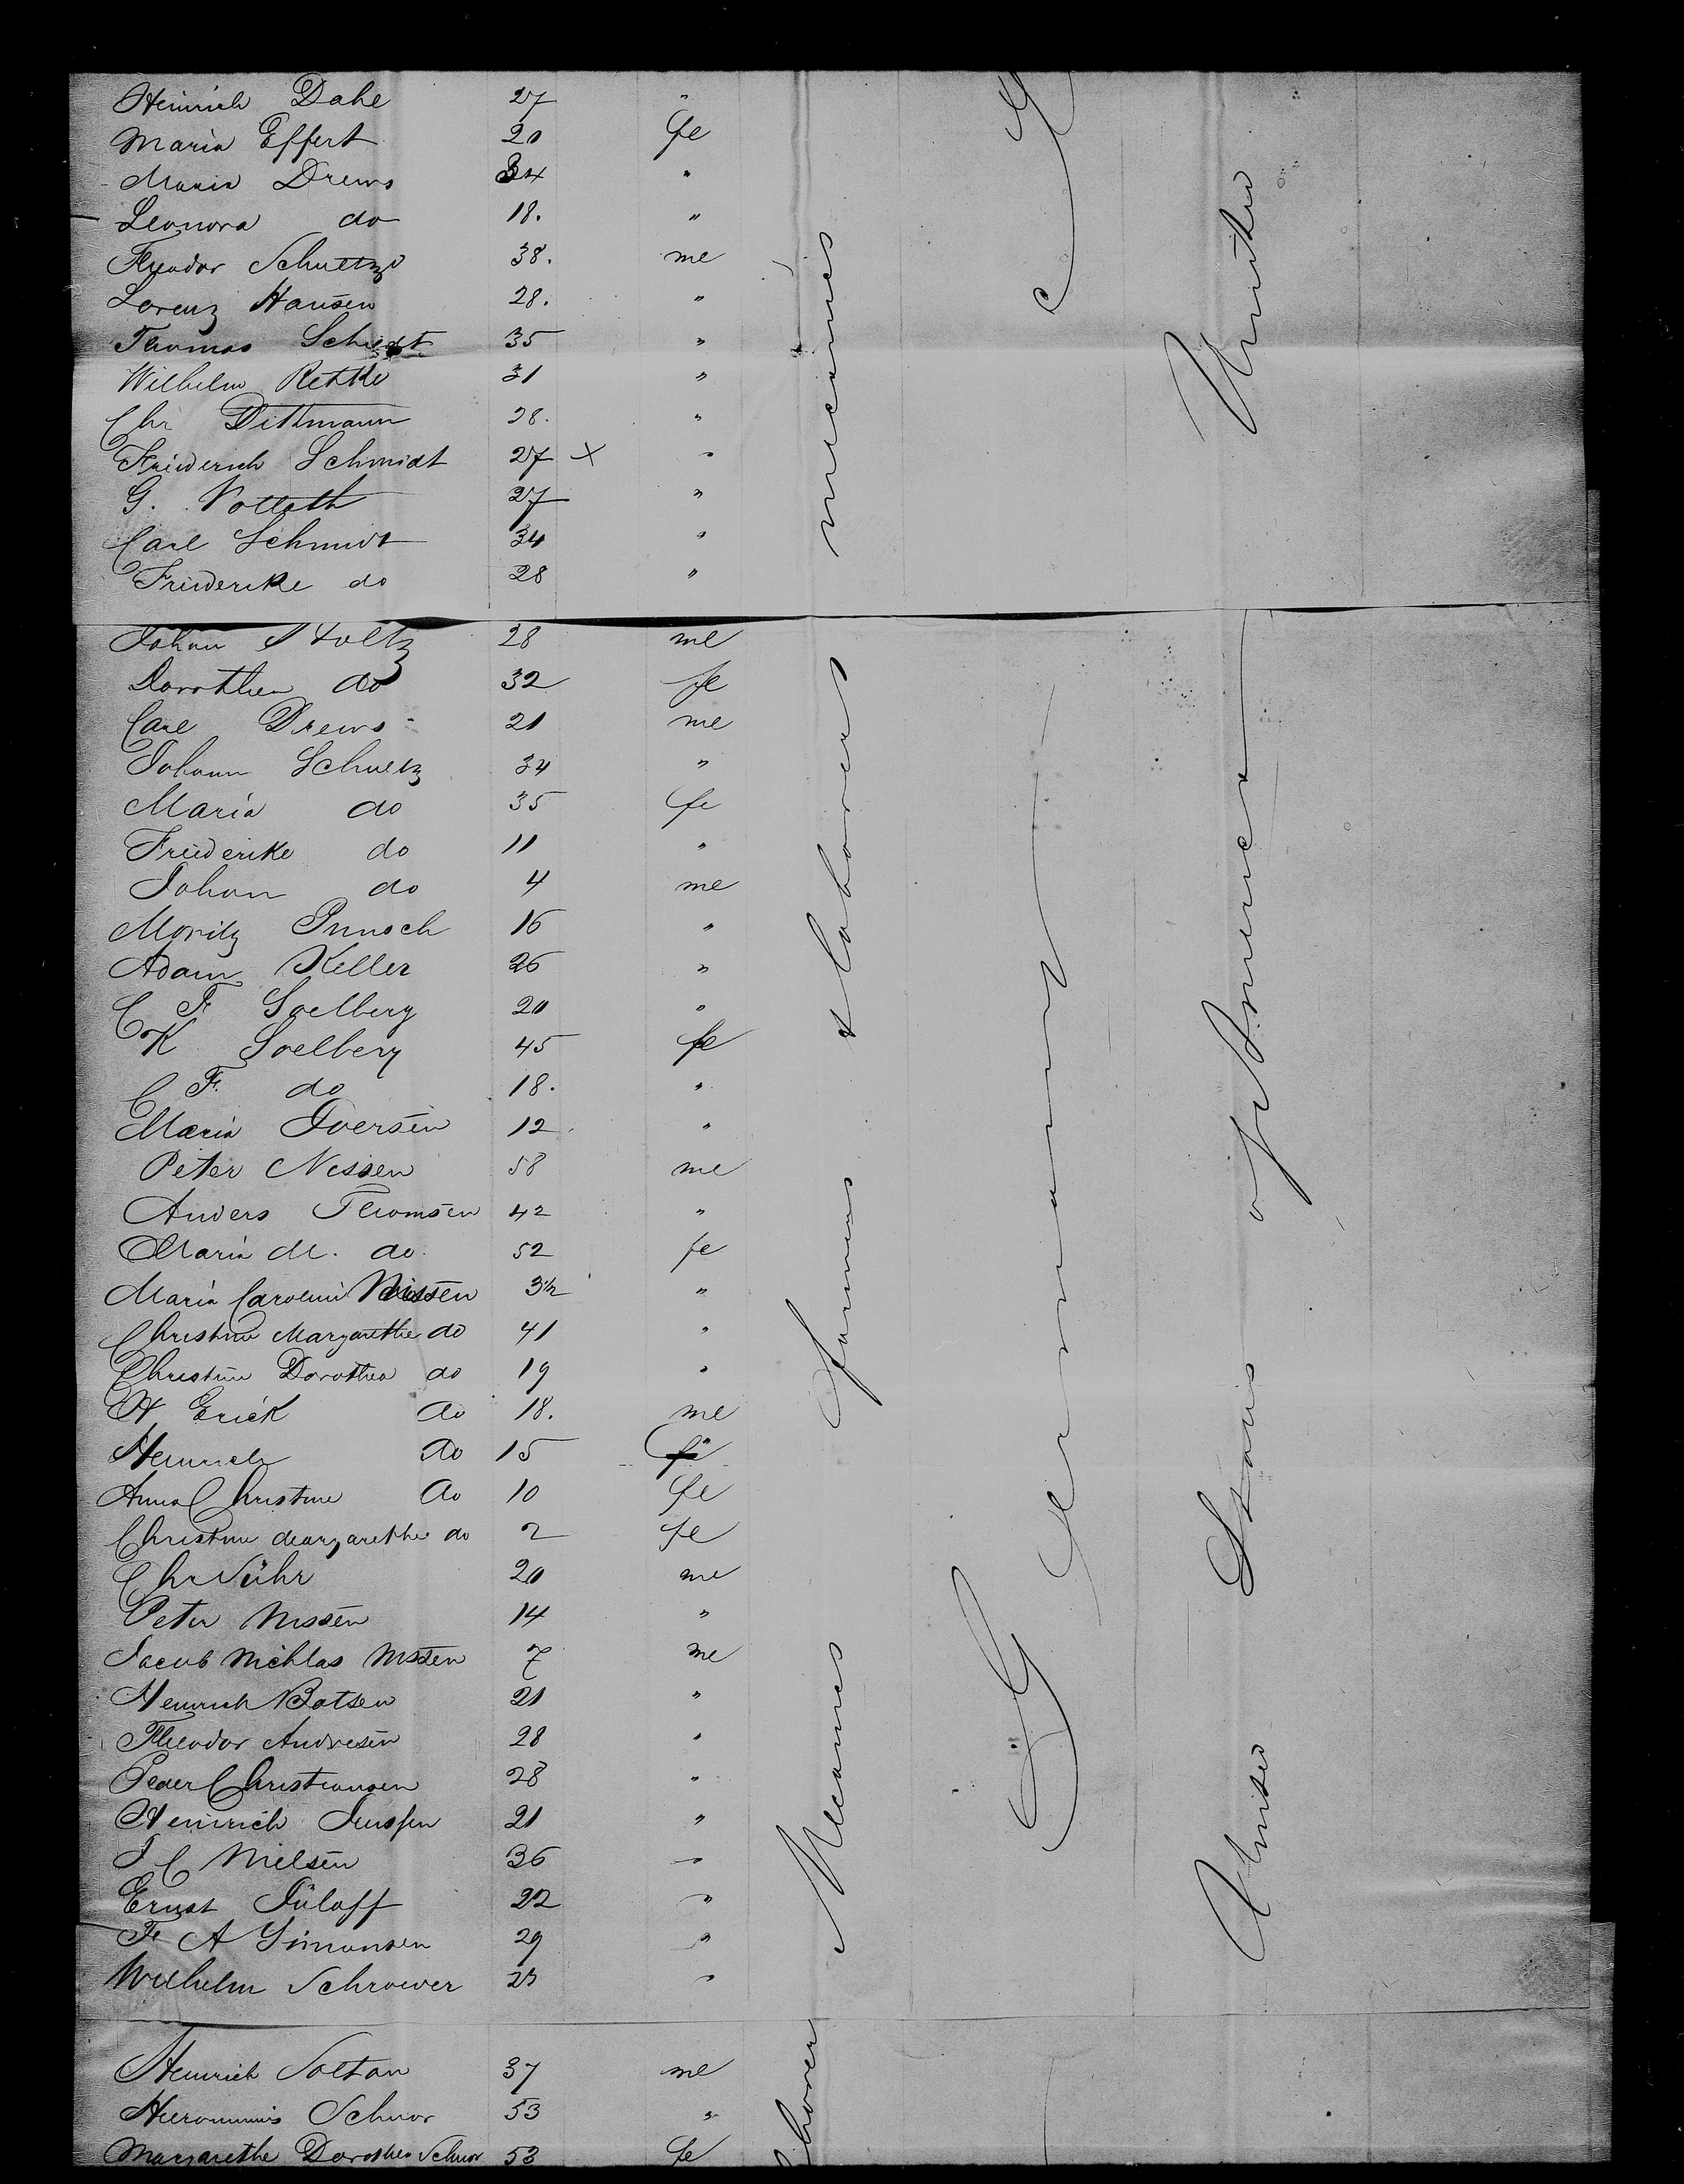 Heinrich Dahe 27 "
Maria Effert 20 fe
Maria Drews 34 "
Leonora do 18. "
Theodor Schultze 38. me
Lorenz Hansen 28. "
Thomas 35 "
Wilhelm Rethke 31 "
Chr Dittmann 28. "
Friederich Schmidt 27 x "
G. 27 "
Carl Schmidt 34 "
Friederike do 28 "
Johan Stoltz 28 me
Dorothea do 32 fe
Carl Drews 21 me
Johann Schultz 34 "
Maria do 35 fe
Friederike do 11 "
Johan do 4 me
Moritz 16 "
Adam Keller 26 "
C F Soelberg 20 "
C K Soelberg 45 fe
C F. do 18. "
Maria Iversen 12 "
Peter Nissen 58 me
Anders Thomsen 42 "
Maria M. do 52 fe
Maria Caroline Nissen 3½ "
Christine Margarethe do 41 "
Christine Dorothea do 19 "
H Erick do 18. me
Heinrich do 15
Anna Christine do 10 fe
Christine Margarethe do 2 fe
Chr Sühr 20 me
Peter Nissen 14 "
Jacob Nichlas Nissen 7 me
Heinrich Botsen 21 "
Theodor Andresen 28 "
Peder Christiansen 28 "
Heinrich 21 "
J C Nielsen 36 "
Ernst Juloff 22 "
F A Simonsen 29 "
Wilhelm Schroeder 23 "
Heinrich Soltau 37 me
Hieronimus Schnor 53 "
Margarethe Dorothea Schnor 53 fe
Mecanics farmers & laborers mecanics
Germany
United States of America
United